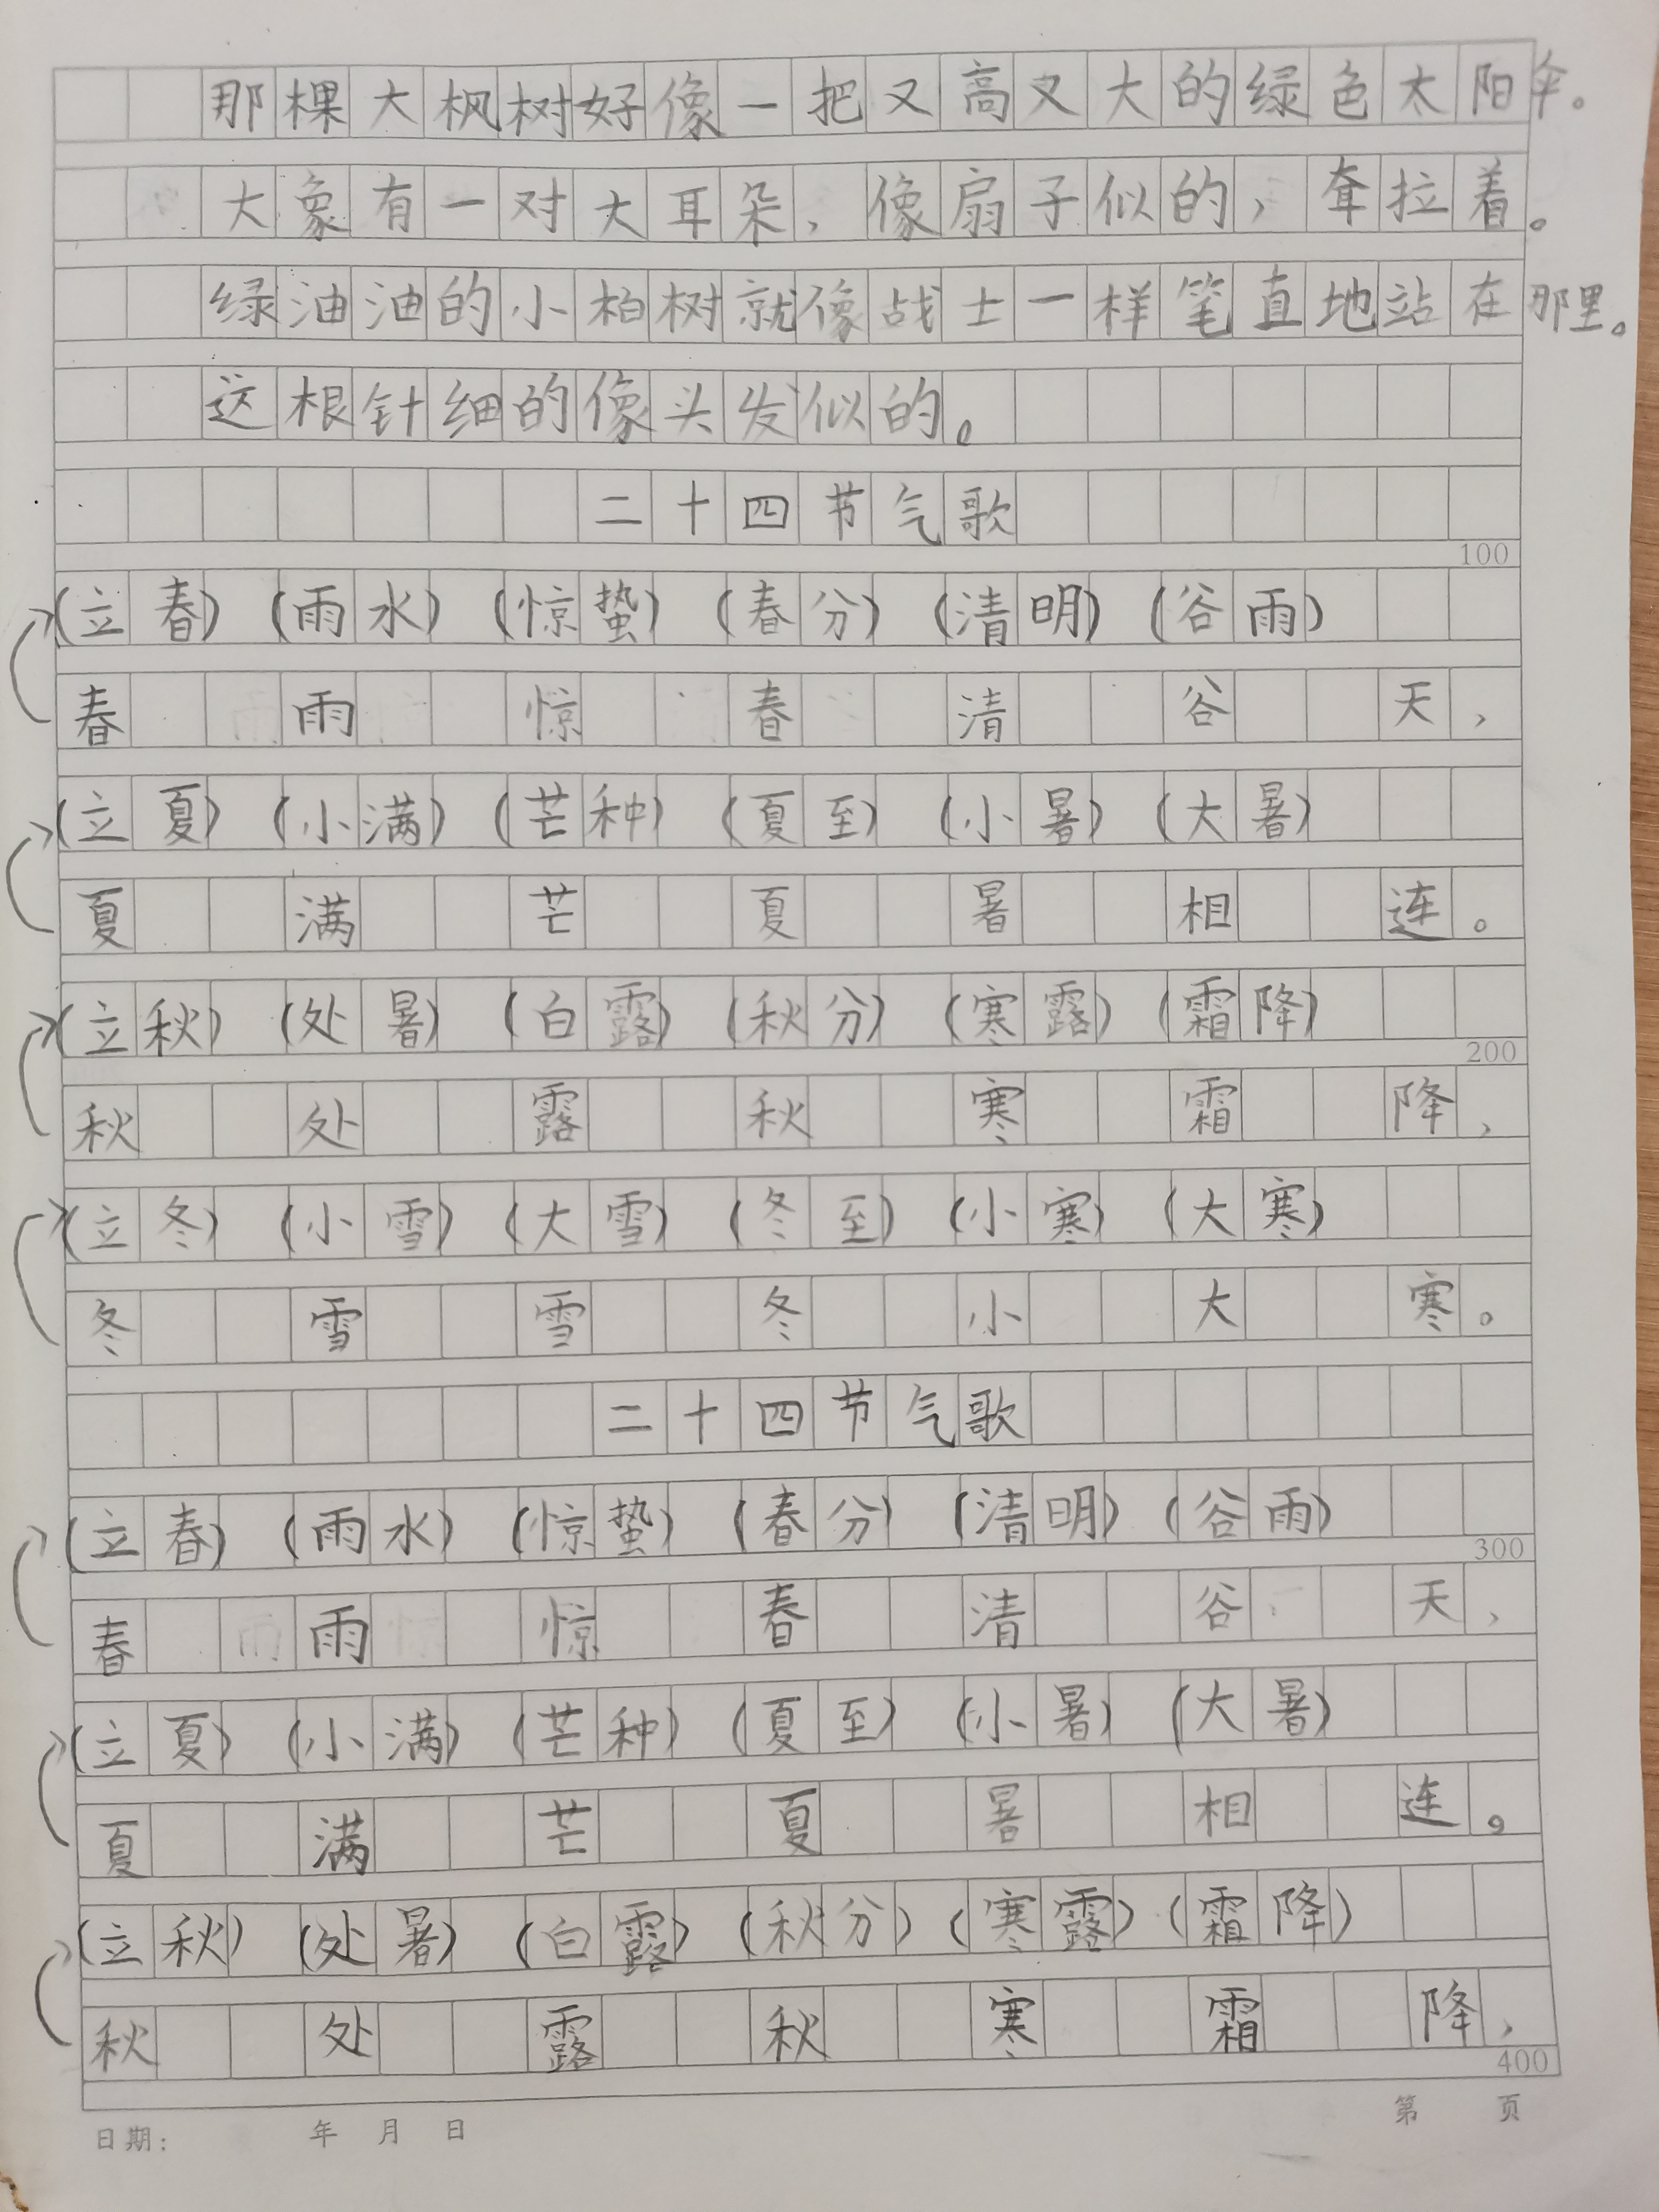 那棵大枫树好像一把又高又大的绿色太阳伞。
大象有一对大耳朵，像扇子似的，耷拉着。
绿油油的小柏树就像战士一样笔直地站在那里。
这根针细的像头发似的。
二十四节气歌
100
(立春) (雨水) (惊蛰) (春分) (清明) (谷雨)
春 雨 惊 春 清 谷 天，
(立夏) (小满) (芒种) (夏至) (小暑) (大暑)
夏 满 芒 夏 暑 相 连。
(立秋) (处暑) (白露) (秋分) (寒露) (霜降)
200
秋 处 露 秋 寒 霜 降，
(立冬) (小雪) (大雪) (冬至) (小寒) (大寒)
冬 雪 雪 冬 小 大 寒。
二十四节气歌
(立春) (雨水) (惊蛰) (春分) (清明) (谷雨)
300
春 雨 惊 春 清 谷 天，
(立夏) (小满) (芒种) (夏至) (小暑) (大暑)
夏 满 芒 夏 暑 相 连。
(立秋) (处暑) (白露) (秋分) (寒露) (霜降)
秋 处 露 秋 寒 霜 降，
400
日期： 年 月 日 第 页